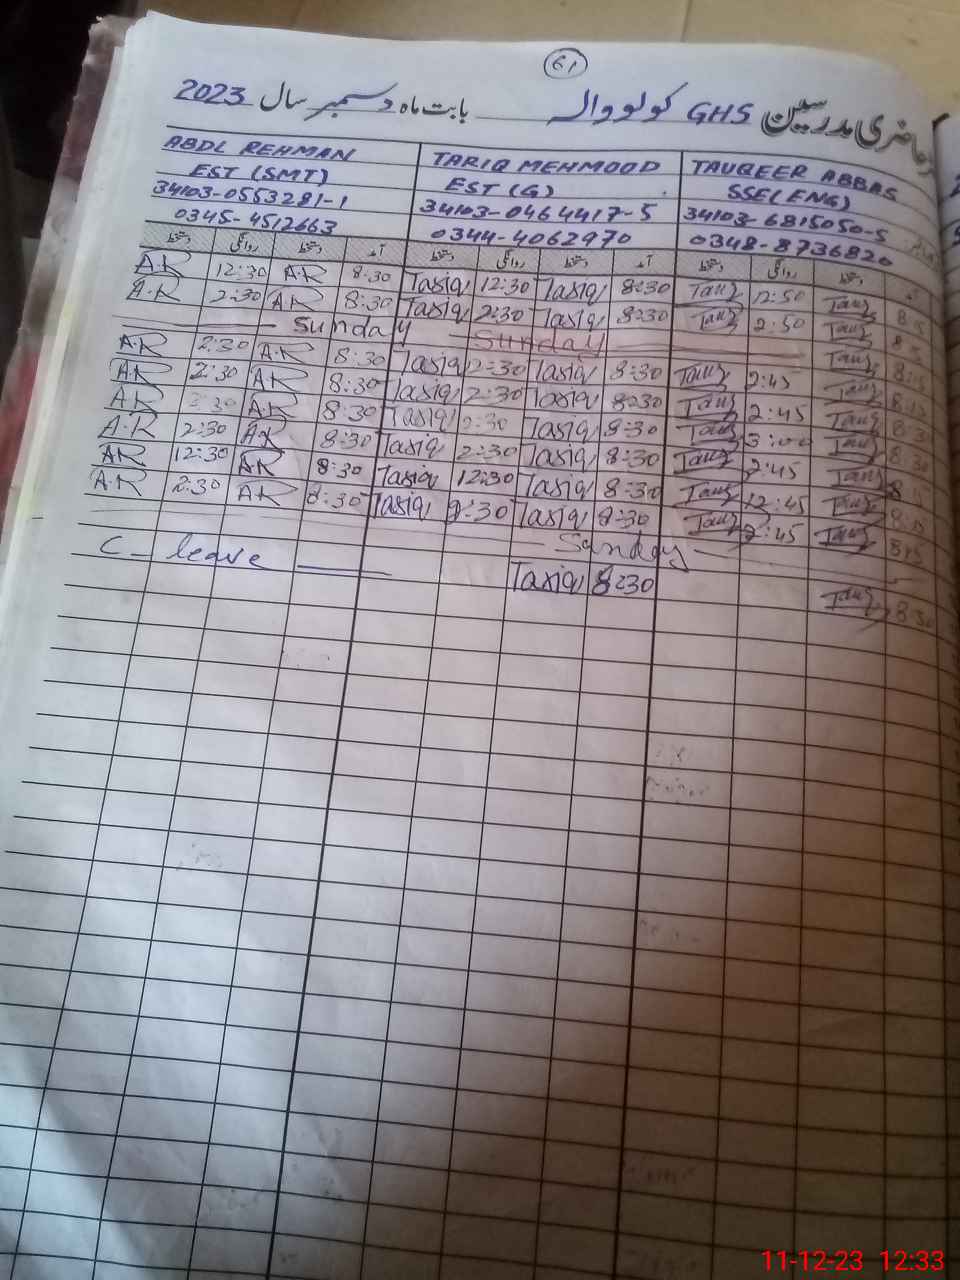 61
حاضری مدرسین GHS کولووالہ بابت ماہ دسمبر سال 2023
ABDL REHMAN TARIQ MEHMOOD TAUQEER ABBAS
EST (SMT) EST (G) SSE(ENG)
34103-0553281-1 34103-0464417-5 34103-6815050-5
0345-4512663 0344-4062970 0348-8736820
دستخط روانگی دستخط آمد دستخط روانگی دستخط آمد دستخط روانگی دستخط آمد
A.R 12:30 A.R 8:30 Tasiq 12:30 Tasiq 8:30 Tauq 12:50 Tauq
A.R 2:30 A.R 8:30 Tasiq 2:30 Tasiq 8:30 Tauq 2:50 Tauq
Sunday Sunday
A.R 2:30 A.R 8:30 Tasiq 2:30 Tasiq 8:30 Tauq 2:45 Tauq
A.R 2:30 A.R 8:30 Tasiq 2:30 Tasiq 8:30 Tauq 2:45 Tauq
A.R 2:30 A.R 8:30 Tasiq 2:30 Tasiq 8:30 Tauq 3:00 Tauq
A.R 2:30 A.R 8:30 Tasiq 2:30 Tasiq 8:30 Tauq 2:45 Tauq
A.R 12:30 A.R 8:30 Tasiq 12:30 Tasiq 8:30 Tauq 12:45 Tauq
A.R 2:30 A.R 8:30 Tasiq 2:30 Tasiq 8:30 Tauq 2:45 Tauq
Sunday
C- leave Tasiq 8:30 Tauq 8:30
11-12-23 12:33